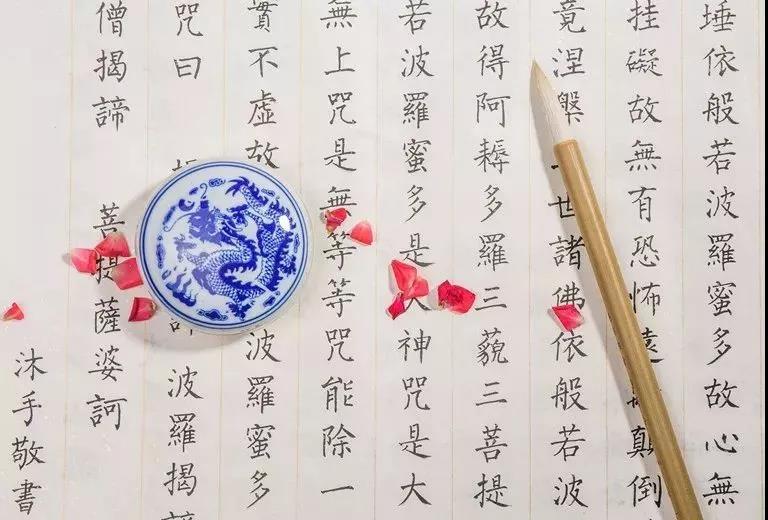 埵依般若波羅蜜多故心無
挂礙故無有恐怖遠顛倒
竟涅槃世諸佛依般若波
故得阿耨多羅三藐三菩提
若波羅蜜多是大神咒是大
無上咒是無等等咒能除一
實不虛故波羅蜜多
咒曰波羅揭諦
僧揭諦 菩提薩婆訶
沐手敬書